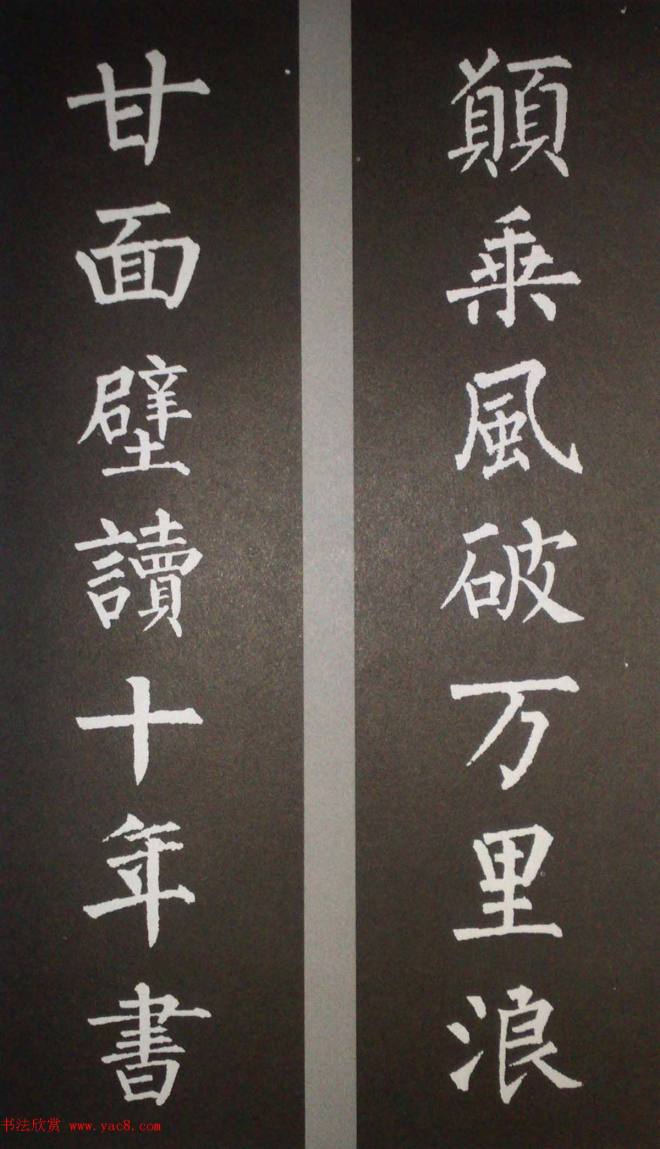 願乗風破万里浪
甘面壁讀十年書
书法欣赏 www.yac8.com